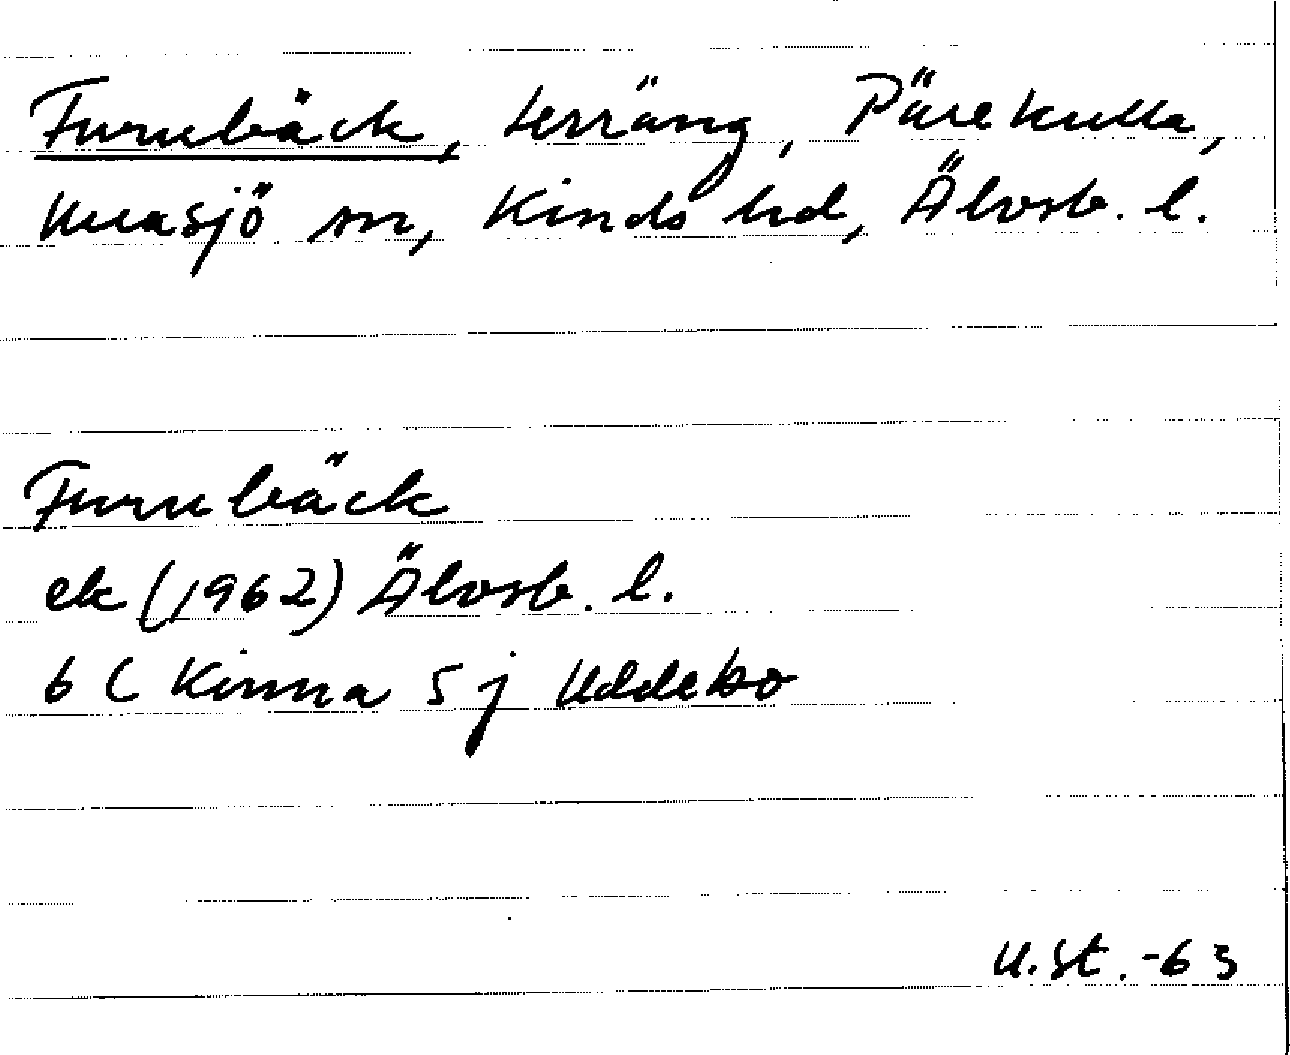 Furubäck, terräng, Pärekulla,
Mjasjö sn, Kinds hd, Älvsb. l.
Furubäck
ek (1962) Älvsb. l.
6 C Kinna 5 j Uddebo
U.St. -63